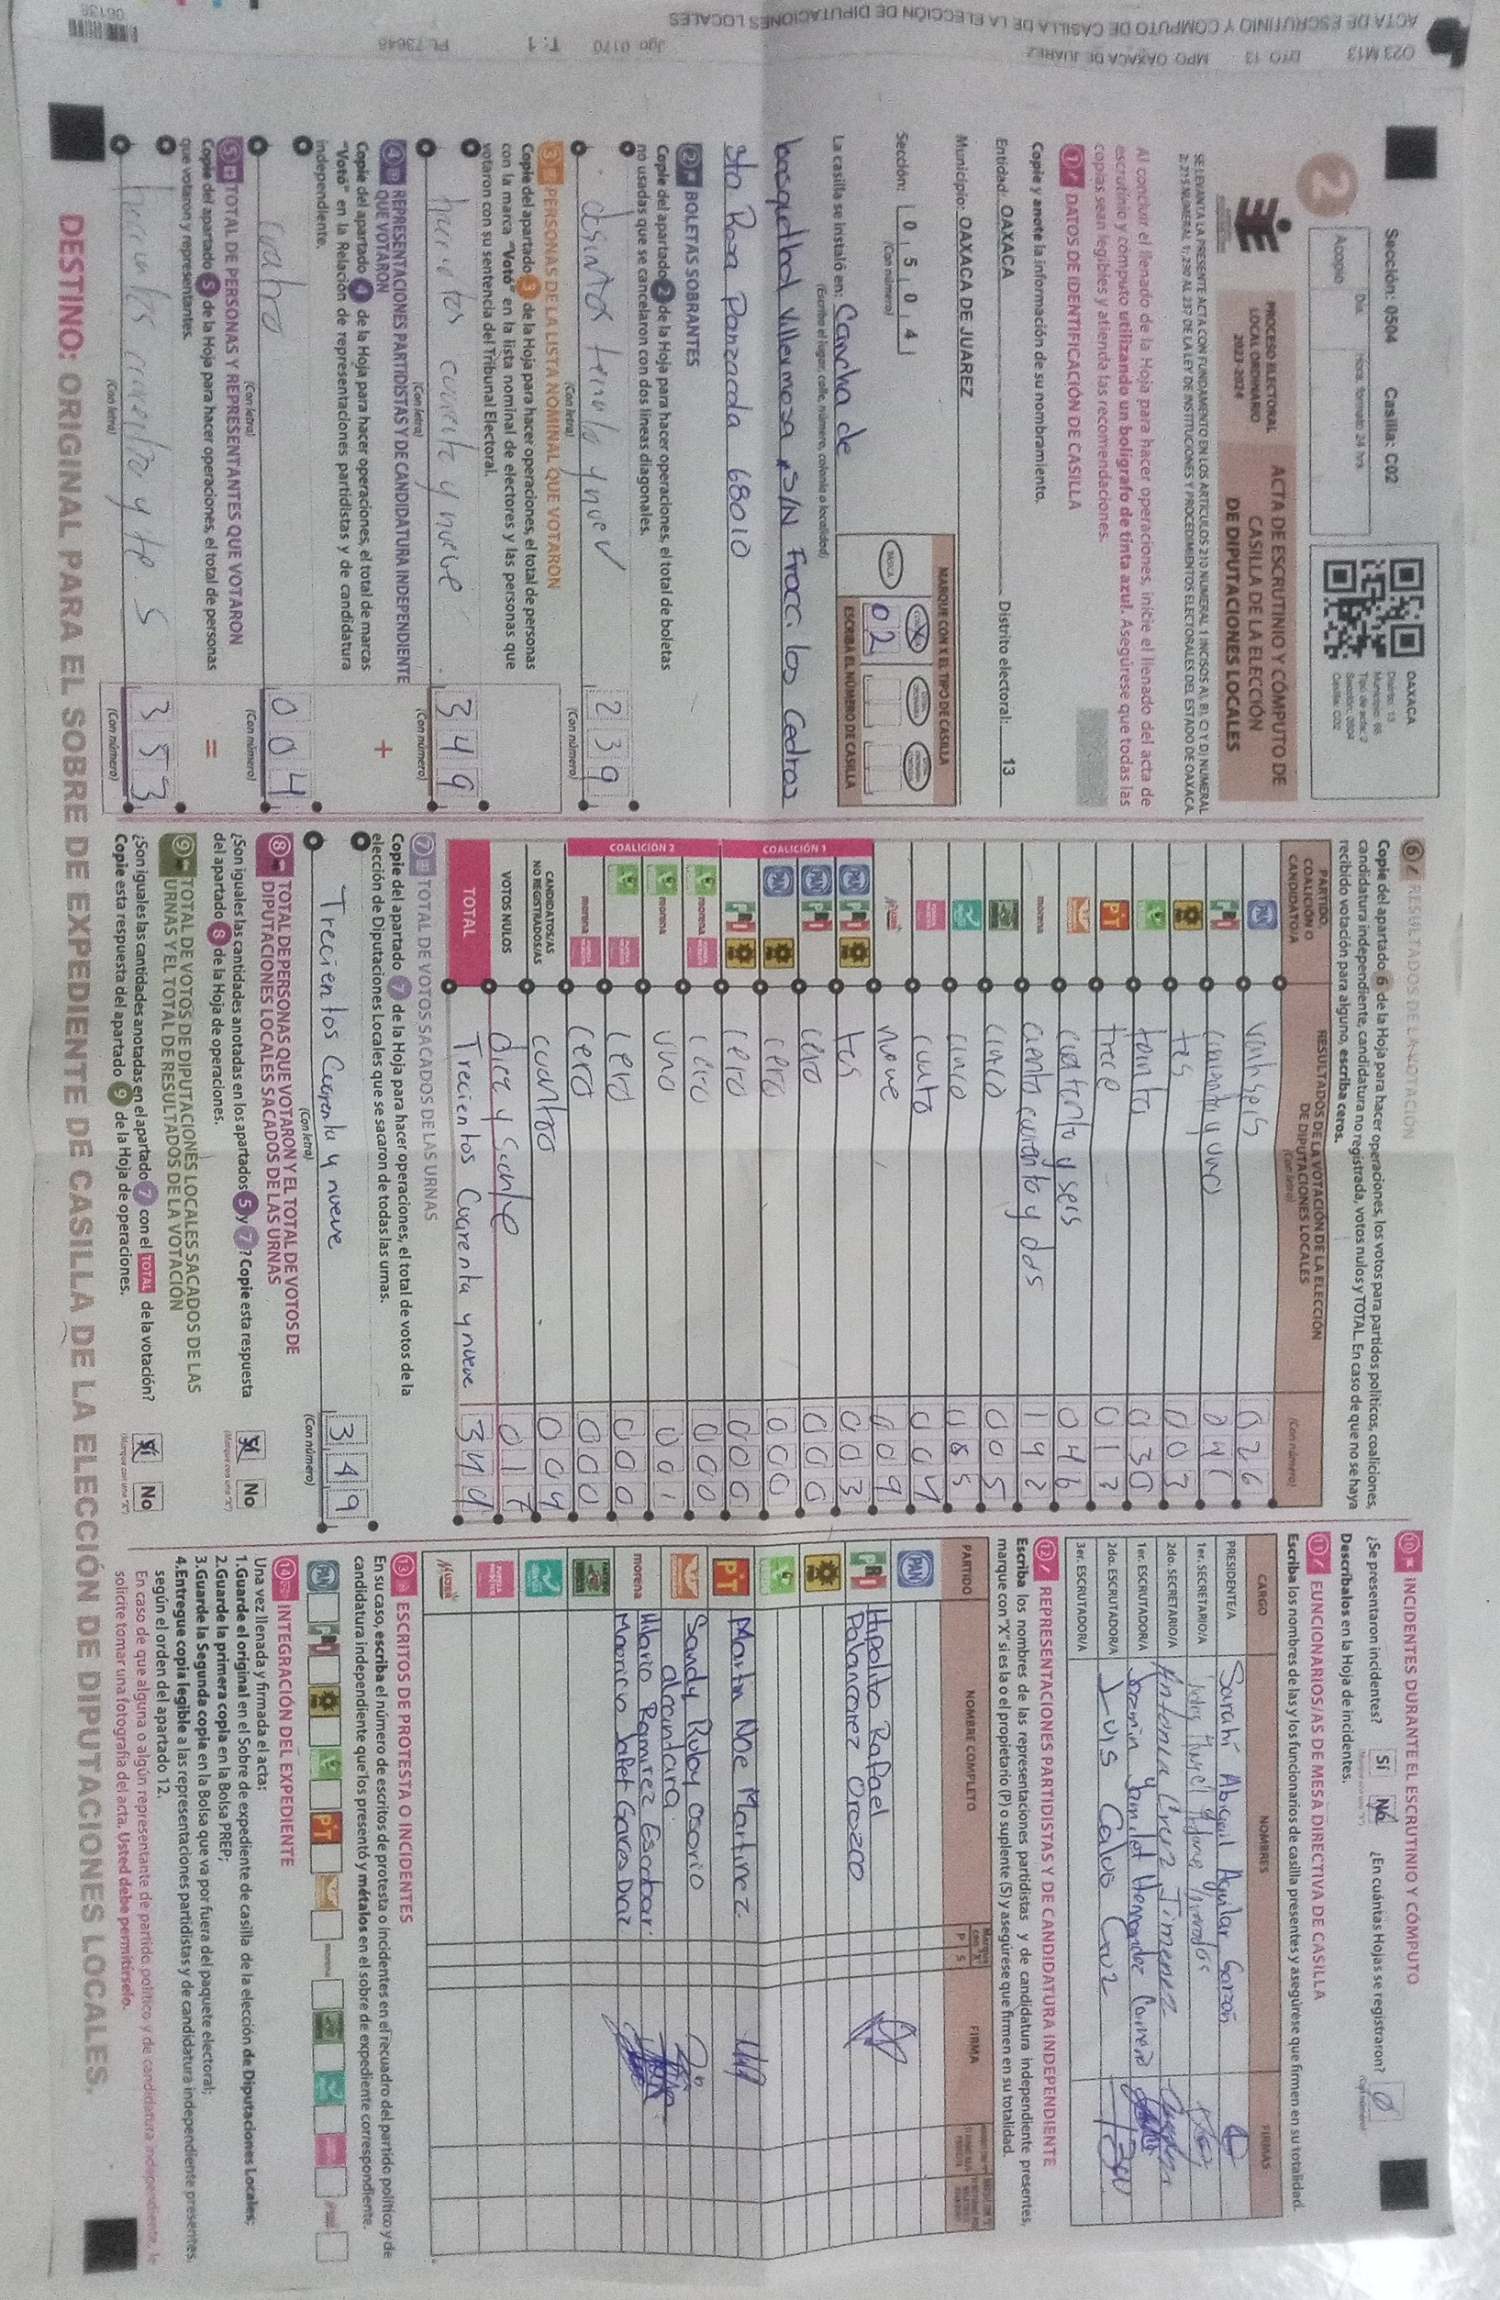 O23 M13 DTO 13 MPO OAXACA DE JUAREZ Jgo 0170 T: 1 PL 73648
ACTA DE ESCRUTINIO Y COMPUTO DE CASILLA DE LA ELECCIÓN DE DIPUTACIONES LOCALES
06136
Sección: 0504 Casilla: C02
2
Acopio
Día
Hora: formato 24 hrs
OAXACA
Distrito: 13
Municipio: 66
Tipo de acta: 2
Sección: 0504
Casilla: C02
PROCESO ELECTORAL
LOCAL ORDINARIO
2023-2024
ACTA DE ESCRUTINIO Y CÓMPUTO DE
CASILLA DE LA ELECCIÓN
DE DIPUTACIONES LOCALES
SE LEVANTA LA PRESENTE ACTA CON FUNDAMENTO EN LOS ARTÍCULOS
DE LA LEY DE INSTITUCIONES Y PROCEDIMIENTOS ELECTORALES DEL ESTADO DE OAXACA.
Al concluir el llenado de la Hoja para hacer operaciones, inicie el llenado del acta de
escrutinio y cómputo utilizando un bolígrafo de tinta azul. Asegúrese que todas las
copias sean legibles y atienda las recomendaciones.
1 DATOS DE IDENTIFICACIÓN DE CASILLA
Copie y anote la información de su nombramiento.
Entidad: OAXACA Distrito electoral: 13
Municipio: OAXACA DE JUAREZ
Sección: 0 5 0 4
(Con número)
MARQUE CON X EL TIPO DE CASILLA
BÁSICA
02
ESCRIBA EL NÚMERO DE CASILLA
La casilla se instaló en: Cancha de
(Escriba el lugar, calle, número, colonia o localidad)
basquetbol Villermosa S/N Fracc. los Cedros
Sta Rosa Panzacola 68010
2 BOLETAS SOBRANTES
Copie del apartado 2 de la Hoja para hacer operaciones, el total de boletas
no usadas que se cancelaron con dos líneas diagonales.
239
(Con letra) (Con número)
3 PERSONAS DE LA LISTA NOMINAL QUE VOTARON
Copie del apartado 3 de la Hoja para hacer operaciones, el total de personas
con la marca "Votó" en la lista nominal de electores y las personas que
votaron con su sentencia del Tribunal Electoral.
349
(Con letra) (Con número)
4 REPRESENTACIONES PARTIDISTAS Y DE CANDIDATURA INDEPENDIENTE
QUE VOTARON
+
Copie del apartado 4 de la Hoja para hacer operaciones, el total de marcas
"Votó" en la Relación de representaciones partidistas y de candidatura
independiente.
004
(Con letra) (Con número)
5 TOTAL DE PERSONAS Y REPRESENTANTES QUE VOTARON
=
Copie del apartado 5 de la Hoja para hacer operaciones, el total de personas
que votaron y representantes.
353
(Con letra) (Con número)
6 RESULTADOS DE LA VOTACIÓN
Copie del apartado 6 de la Hoja para hacer operaciones, los votos para partidos políticos, coaliciones,
candidatura independiente, candidatura no registrada, votos nulos y TOTAL. En caso de que no se haya
recibido votación para alguno, escriba ceros.
PARTIDO, COALICIÓN O CANDIDATO/A
RESULTADOS DE LA VOTACIÓN DE LA ELECCIÓN DE DIPUTACIONES LOCALES
(Con letra) (Con número)
PAN 026
PRI cincuenta y uno
003
030
PT trece 013
cuarenta y seis 046
morena
cinco 005
cinco
cuatro 004
MUJER nueve 009
COALICIÓN 1
PAN PRI 003
PAN PRI cero 000
PAN cero 000
PRI cero 000
COALICIÓN 2
morena cero 000
morena uno 001
cero 000
morena cero 000
CANDIDATOS/AS NO REGISTRADOS/AS 004
VOTOS NULOS 017
TOTAL Trecientos Cuarenta y nueve 349
7 TOTAL DE VOTOS SACADOS DE LAS URNAS
Copie del apartado 7 de la Hoja para hacer operaciones, el total de votos de la
elección de Diputaciones Locales que se sacaron de todas las urnas.
Trecientos Cuarenta y nueve 349
(Con letra) (Con número)
8 TOTAL DE PERSONAS QUE VOTARON Y EL TOTAL DE VOTOS DE
DIPUTACIONES LOCALES SACADOS DE LAS URNAS
¿Son iguales las cantidades anotadas en los apartados 5 y 7? Copie esta respuesta
del apartado 8 de la Hoja de operaciones.
Sí No
9 TOTAL DE VOTOS DE DIPUTACIONES LOCALES SACADOS DE LAS
URNAS Y EL TOTAL DE RESULTADOS DE LA VOTACIÓN
¿Son iguales las cantidades anotadas en el apartado 7 con el TOTAL de la votación?
Copie esta respuesta del apartado 9 de la Hoja de operaciones.
Sí No
10 INCIDENTES DURANTE EL ESCRUTINIO Y CÓMPUTO
¿Se presentaron incidentes? Sí No ¿En cuántas Hojas se registraron? 0
Descríbalos en la Hoja de incidentes.
11 FUNCIONARIOS/AS DE MESA DIRECTIVA DE CASILLA
Escriba los nombres de las y los funcionarios de casilla presentes y asegúrese que firmen en su totalidad.
CARGO NOMBRES FIRMAS
PRESIDENTE/A Sarahí Abigail Aguilar Garzón
1er. SECRETARIO/A
2do. SECRETARIO/A Antonia Cruz Jimenez
1er. ESCRUTADOR/A Yamilet Hernandez
2do. ESCRUTADOR/A Luis Calvo Cruz
3er. ESCRUTADOR/A
12 REPRESENTACIONES PARTIDISTAS Y DE CANDIDATURA INDEPENDIENTE
Escriba los nombres de las representaciones partidistas y de candidatura independiente presentes,
marque con "X" si es la o el propietario (P) o suplente (S) y asegúrese que firmen en su totalidad.
PARTIDO NOMBRE COMPLETO Marque con X P S FIRMA
PAN
PRI Hipolito Rafael
Palancarez Orozco
PT Martin Noe Martinez
Sandy Ruby Osorio
alcantara
morena Hilario Ramirez Escobar
Mauricio Jafet Garces Diaz
MUJER
13 ESCRITOS DE PROTESTA O INCIDENTES
En su caso, escriba el número de escritos de protesta o incidentes en el recuadro del partido político y de
candidatura independiente que los presentó y métalos en el sobre de expediente correspondiente.
PAN PRI PT morena
14 INTEGRACIÓN DEL EXPEDIENTE
Una vez llenada y firmada el acta:
1.Guarde el original en el Sobre de expediente de casilla de la elección de Diputaciones Locales;
2.Guarde la primera copia en la Bolsa PREP;
3.Guarde la Segunda copia en la Bolsa que va por fuera del paquete electoral;
4.Entregue copia legible a las representaciones partidistas y de candidatura independiente presentes,
según el orden del apartado 12.
En caso de que alguna o algún representante de partido político y de candidatura independiente, le
solicite tomar una fotografía del acta, Usted debe permitírselo.
DESTINO: ORIGINAL PARA EL SOBRE DE EXPEDIENTE DE CASILLA DE LA ELECCIÓN DE DIPUTACIONES LOCALES.